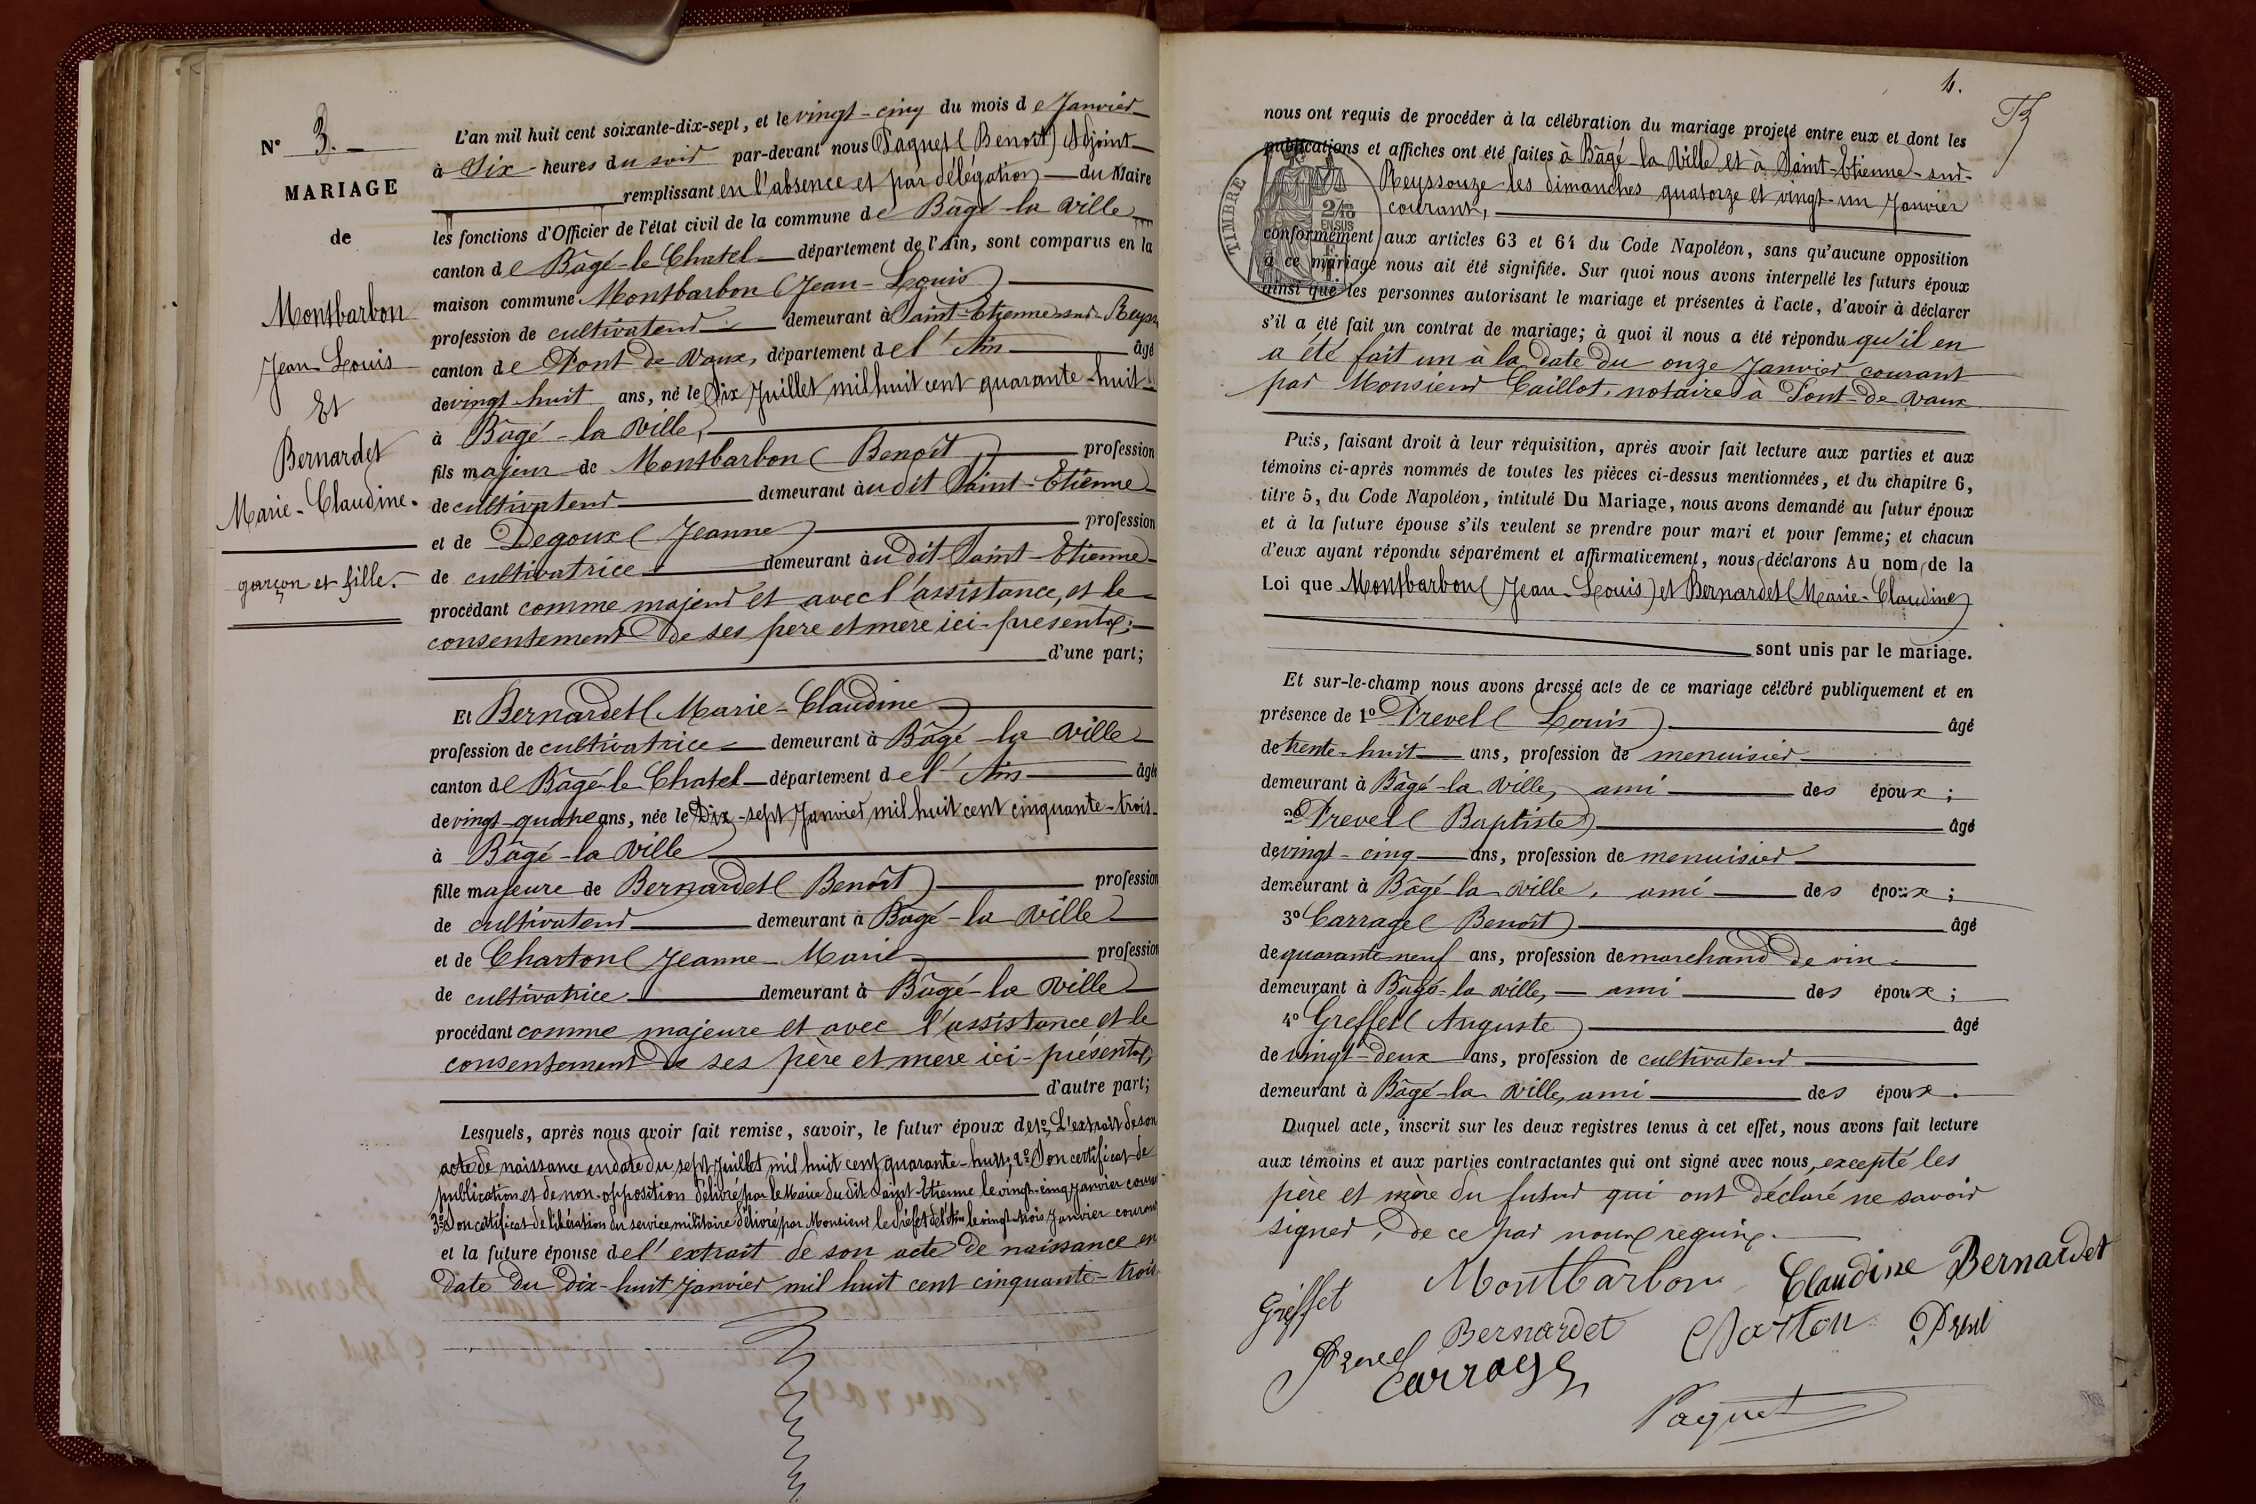 N° 3.
MARIAGE
de
Montbarbon
Jean-Louis
Et
Bernardet
Marie-Claudine.
garçon et fille.
L'an mil huit cent soixante-dix-sept, et le vingt-cinq du mois de Janvier
à Six heures du soir par-devant nous Paquet (Benoît) Adjoint
remplissant en l'absence et par délégation du Maire
les fonctions d'Officier de l'état civil de la commune de Bâgé-la Ville
canton de Bâgé-le Chatel département de l'Ain, sont comparus en la
maison commune Montbarbon (Jean-Louis)
profession de cultivateur demeurant à Saint-Etienne-sur-Reyss
canton de Pont de Vaux, département de l'Ain âgé
de vingt-huit ans, né le Six Juillet mil huit cent quarante-huit
à Bâgé-la Ville,
fils majeur de Montbarbon (Benoît) profession
de cultivateur demeurant à u dit Saint-Etienne
et de Degoux (Jeanne) profession
de cultivatrice demeurant à u dit Saint-Etienne
procédant comme majeur et avec l'assistance, et le
consentement de ses père et mère ici-présents;
d'une part;
Et Bernardet (Marie-Claudine)
profession de cultivatrice demeurant à Bâgé-la Ville
canton de Bâgé-le Chatel département de l'Ain âgée
de vingt-quatre ans, née le Dix-sept Janvier mil huit cent cinquante-trois
à Bâgé-la Ville
fille majeure de Bernardet (Benoît) profession
de cultivateur demeurant à Bâgé-la Ville
et de Charton (Jeanne-Marie profession
de cultivatrice demeurant à Bâgé-la Ville
procédant comme majeure et avec l'assistance et le
consentement de ses père et mère ici-présents,
d'autre part;
Lesquels, après nous avoir fait remise, savoir, le futur époux de 1° L'extrait de son
acte de naissance en date du sept Juillet mil huit cent quarante-huit, 2° Son certificat de
publication et de non-opposition délivré par le Maire du dit Saint-Etienne le vingt-cinq Janvier courant
3° Son certificat de libération du service militaire délivré par Monsieur le Préfet de l'Ain le vingt-trois Janvier courant
et la future épouse de l'extrait de son acte de naissance en
date du Dix-huit Janvier mil huit cent cinquante-trois.
4.
nous ont requis de procéder à la célébration du mariage projeté entre eux et dont les
publications et affiches ont été faites à Bâgé-la Ville et à Saint-Etienne-sur-
Reyssouze les dimanches quatorze et vingt-un Janvier
courant,
TIMBRE
2/10
EN SUS
conformément aux articles 63 et 64 du Code Napoléon, sans qu'aucune opposition
à ce mariage nous ait été signifiée. Sur quoi nous avons interpellé les futurs époux
ainsi que les personnes autorisant le mariage et présentes à l'acte, d'avoir à déclarer
s'il a été fait un contrat de mariage; à quoi il nous a été répondu qu'il en
a été fait un à la date du onze Janvier courant
par Monsieur Caillot, notaire à Pont-de-Vaux
Puis, faisant droit à leur réquisition, après avoir fait lecture aux parties et aux
témoins ci-après nommés de toutes les pièces ci-dessus mentionnées, et du chapitre 6,
titre 5, du Code Napoléon, intitulé Du Mariage, nous avons demandé au futur époux
et à la future épouse s'ils veulent se prendre pour mari et pour femme; et chacun
d'eux ayant répondu séparément et affirmativement, nous déclarons Au nom de la
Loi que Montbarbon (Jean-Louis) et Bernardet (Marie-Claudine)
sont unis par le mariage.
Et sur-le-champ nous avons dressé acte de ce mariage célébré publiquement et en
présence de 1° Prevel (Louis) âgé
de trente-huit ans, profession de menuisier
demeurant à Bâgé-la Ville, ami des époux;
2° Prevel (Baptiste) âgé
de vingt-cinq ans, profession de menuisier
demeurant à Bâgé-la Ville, ami des époux;
3° Carrage (Benoît) âgé
de quarante-neuf ans, profession de marchand de vin
demeurant à Bâgé-la Ville, ami des époux;
4° Greffet (Auguste) âgé
de vingt-deux ans, profession de cultivateur
demeurant à Bâgé-la Ville, ami des époux.
Duquel acte, inscrit sur les deux registres tenus à cet effet, nous avons fait lecture
aux témoins et aux parties contractantes qui ont signé avec nous, excepté les
père et mère du futur qui ont déclaré ne savoir
signer, de ce par nous requis.
Greffet Montbarbon Claudine Bernardet
Prevel Bernardet Charton Prevel
Carrage
Paquet